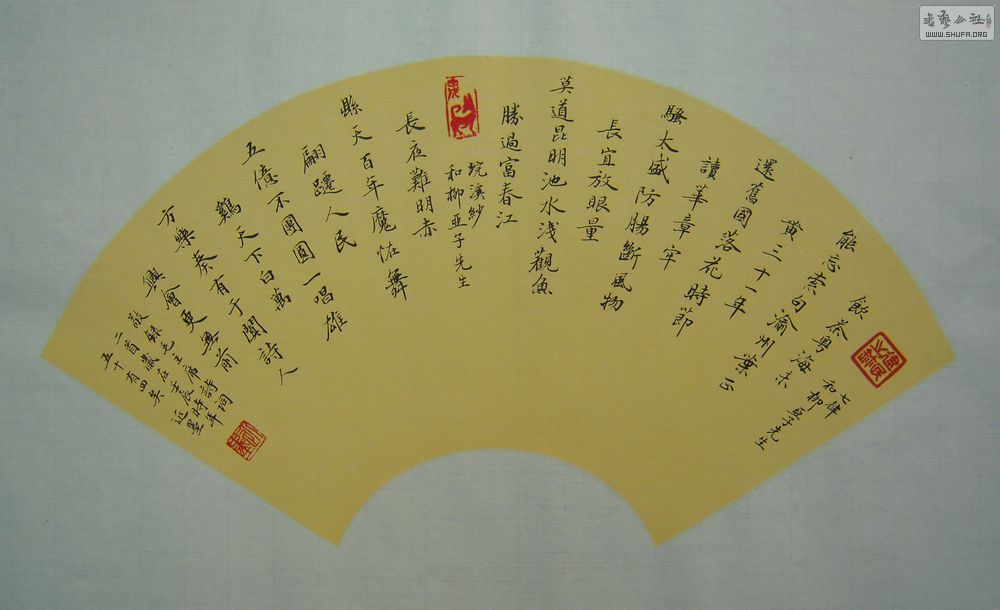 飲茶粵海未
七律
和柳亞子先生
能忘索句渝州葉正
黄三十一年
還舊國落花時節
讀華章牢
騷太盛防腸斷風物
長宜放眼量
莫道昆明池水淺觀魚
勝過富春江
浣溪紗
和柳亞子先生
長夜難明赤
縣天百年魔怪舞
翩躚人民
五億不團圓一唱雄
鷄天下白萬
方樂奏有于闐詩人
興會更無前
敬録毛主席詩詞
二首歲在壬辰時年
五十有四矣 近墨
書藝公社
WWW.SHUFA.ORG